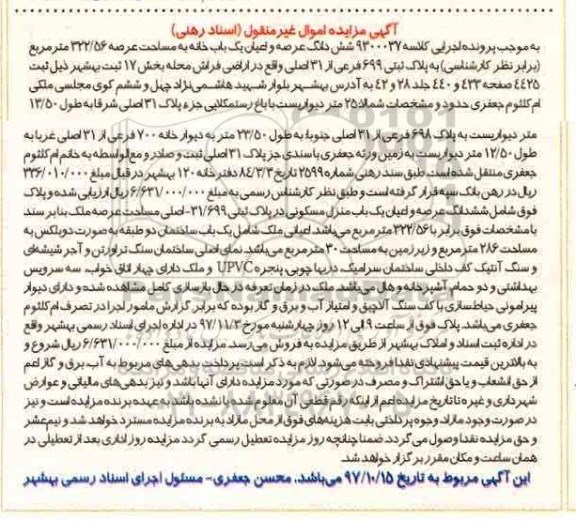 آگهی مزایده اموال غیرمنقول (اسناد رهنی)
به موجب پرونده اجرایی کلاسه ۹۳۰۰۰۳۷ شش دانگ عرصه و اعیان یک باب خانه به مساحت عرصه ۳۲۲/۵۶ مترمربع
(برابر نظر کارشناسی) به پلاک ثبتی ۶۹۹ فرعی از ۳۱ اصلی واقع در اراضی فراش محله بخش ۱۷ ثبت بهشهر ذیل ثبت
۴۴۲۵ صفحه ۴۳۳ و ۴۴۰ جلد ۲۸ و ۴۲ به آدرس بهشهر بلوار شهید هاشمی نژاد چهل و ششم کوی مجلسی ملکی
ام کلثوم جعفری حدود و مشخصات شمالا: ۲۵ متر دیواریست با باغ رستمکلایی جزء پلاک ۳۱ اصلی شرقا به طول ۱۳/۵۰
متر دیواریست به پلاک ۶۹۸ فرعی از ۳۱ اصلی جنوبا، به طول ۲۳/۵۰ متر به دیوار خانه ۷۰۰ فرعی از ۳۱ اصلی غربا به
طول ۱۲/۵۰ متر دیواریست به زمین ورثه جعفری با سندی جز پلاک ۳۱ اصلی ثبت و صادر و مع الواسطه به خانم ام کلثوم
جعفری منتقل شده است. طبق سند رهنی شماره ۲۵۹۹ تاریخ ۸۴/۳/۳ دفترخانه ۱۲۰ بهشهر در قبال مبلغ ۳۳۶/۰۱۰/۰۰۰
ریال در رهن بانک سپه قرار گرفته است و طبق نظر کارشناس رسمی به مبلغ ۶/۶۳۱/۰۰۰/۰۰۰ ریال ارزیابی شده و پلاک
فوق شامل ششدانگ عرصه و اعیان یک باب منزل مسکونی در پلاک ثبتی ۳۱/۶۹۹-اصلی مساحت عرصه ملک بنا بر سند
با مشخصات فوق برابر با ۳۲۲/۵۶ متر مربع می باشد. اعیانی ملک شامل یک باب ساختمان دو طبقه به صورت دوبلکس به
مساحت ۲۸۶ متر مربع و زیرزمین به مساحت ۳۰ متر مربع می باشد. نمای اصلی ساختمان سنگ تراورتن و آجر شیشه ای
و سنگ آنتیک کف داخلی ساختمان سرامیک، دربها چوبی، پنجره UPVC و ملک دارای چهار اتاق خواب، سه سرویس
بهداشتی و دو حمام، آشپزخانه و هال می باشد. ملک در زمان تعرفه در حال بازسازی کامل مشاهده شده و دارای دیوار
پیرامونی حیاط سازی با کف سنگ آلاچیق و امتیاز آب و برق و گاز بوده که برابر گزارش مامور اجرا در تصرف ام کلثوم
جعفری می باشد. پلاک فوق از ساعت ۹ الی ۱۲ روز چهارشنبه مورخ ۹۷/۱۱/۳ در اداره اجرای اسناد رسمی بهشهر واقع
در اداره ثبت اسناد و املاک بهشهر از طریق مزایده به فروش می رسد. مزایده از مبلغ ۶/۶۳۱/۰۰۰/۰۰۰ ریال شروع و
به بالاترین قیمت پیشنهادی نقدا فروخته می شود. لازم به ذکر است پرداخت بدهی های مربوط به آب، برق و گاز اعم
از حق انشعاب و یا حق اشتراک و مصرف در صورتی که مورد مزایده دارای آنها باشد و نیز بدهی های مالیاتی و عوارض
شهرداری و غیره تا تاریخ مزایده اعم از اینکه رقم قطعی آن معلوم شده یا نشده باشد به عهده برنده مزایده است و نیز
در صورت وجود مازاد، وجوه پرداختی بابت هزینه های فوق از محل مازاد به برنده مزایده مسترد خواهد شد و نیم عشر
و حق مزایده نقدا وصول می گردد. ضمنا چنانچه روز مزایده تعطیل رسمی گردد مزایده روز اداری بعد از تعطیلی در
همان ساعت و مکان مقرر برگزار خواهد شد.
این آگهی مربوط به تاریخ ۹۷/۱۰/۱۵ می‌باشد. محسن جعفری- مسئول اجرای اسناد رسمی بهشهر